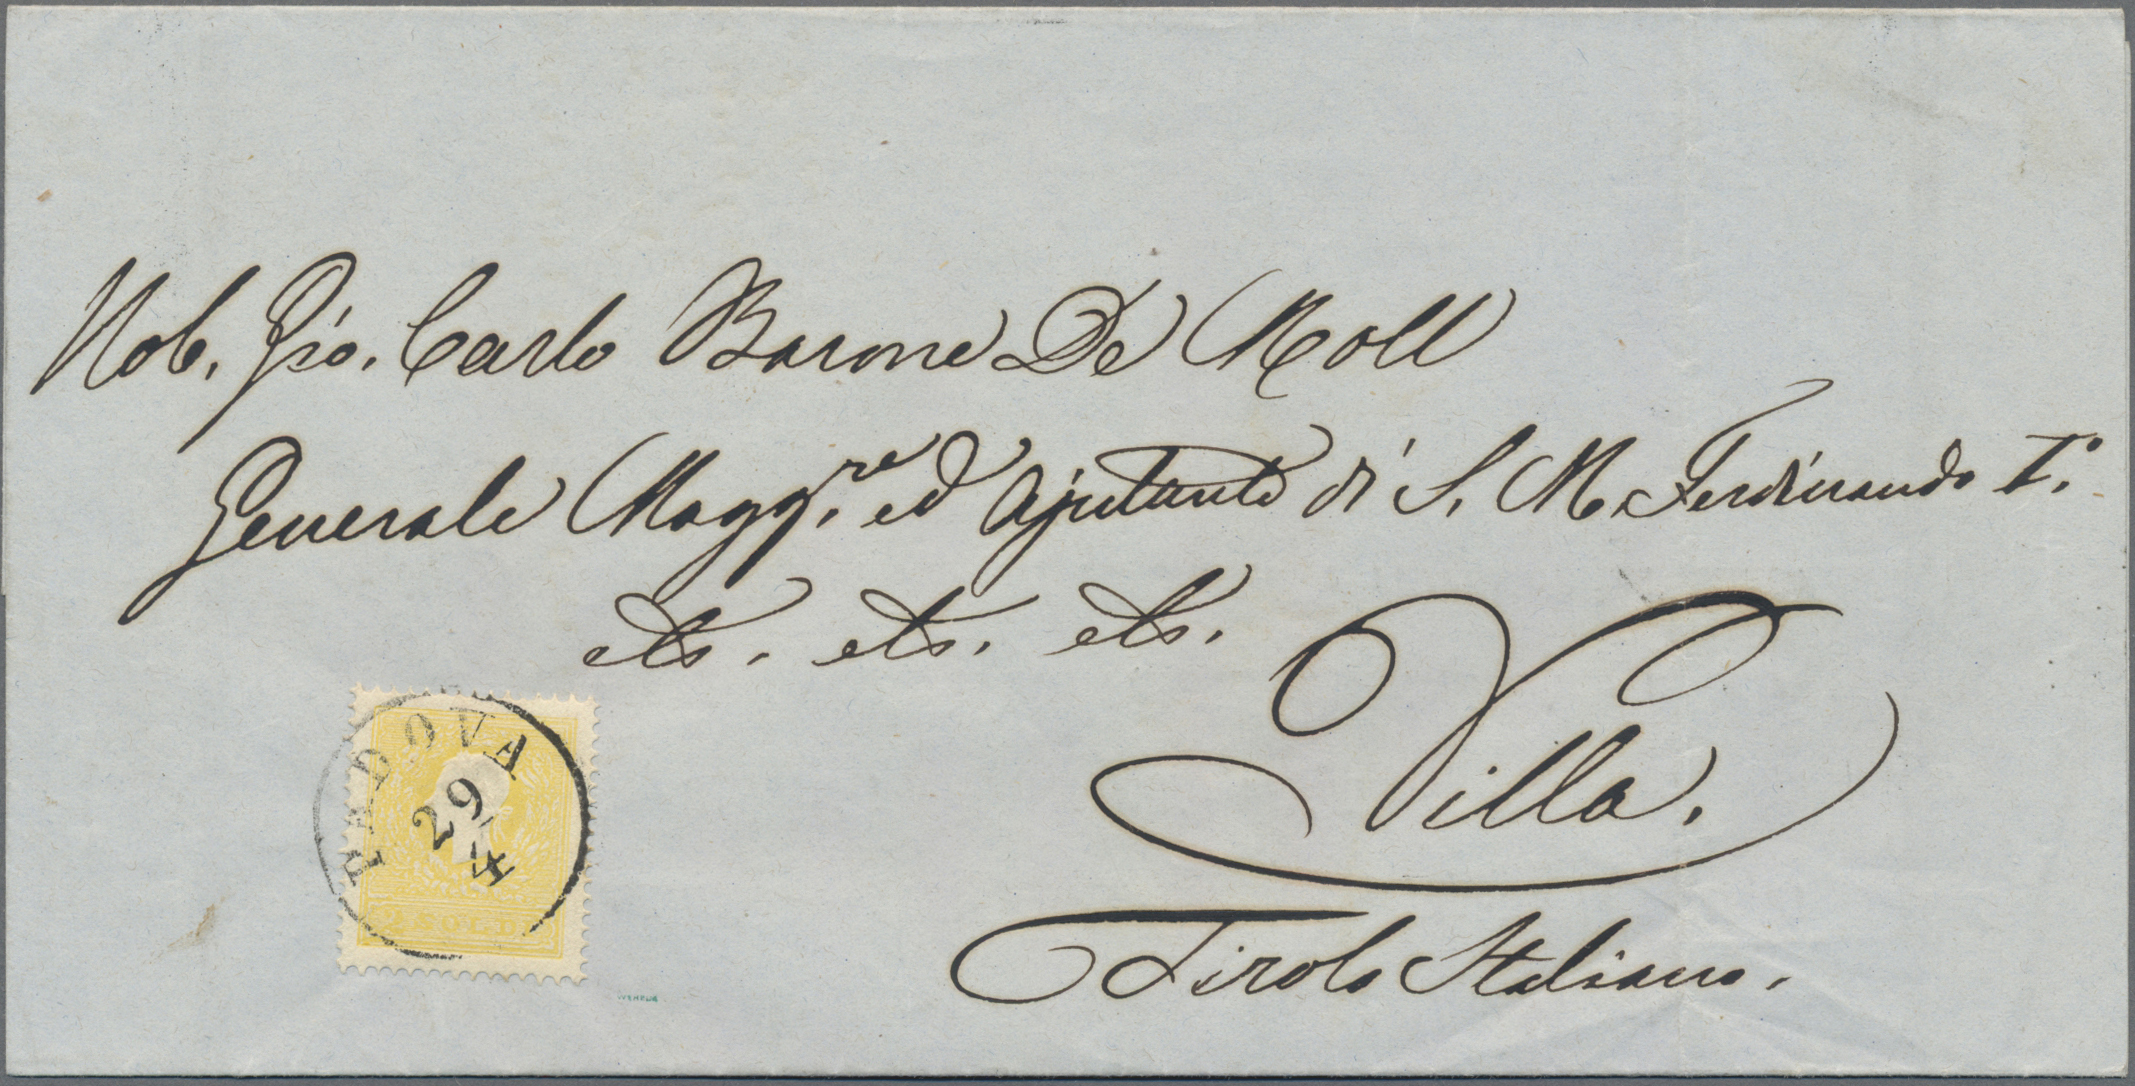 Nob. Gio. Carlo Barone De Moll
Generale Magg.re ed Ajutante di S. M. Ferdinando I.o
etc. etc. etc.
Villa.
Tirolo Italiano.
PADOVA
29
4
2 SOLDI